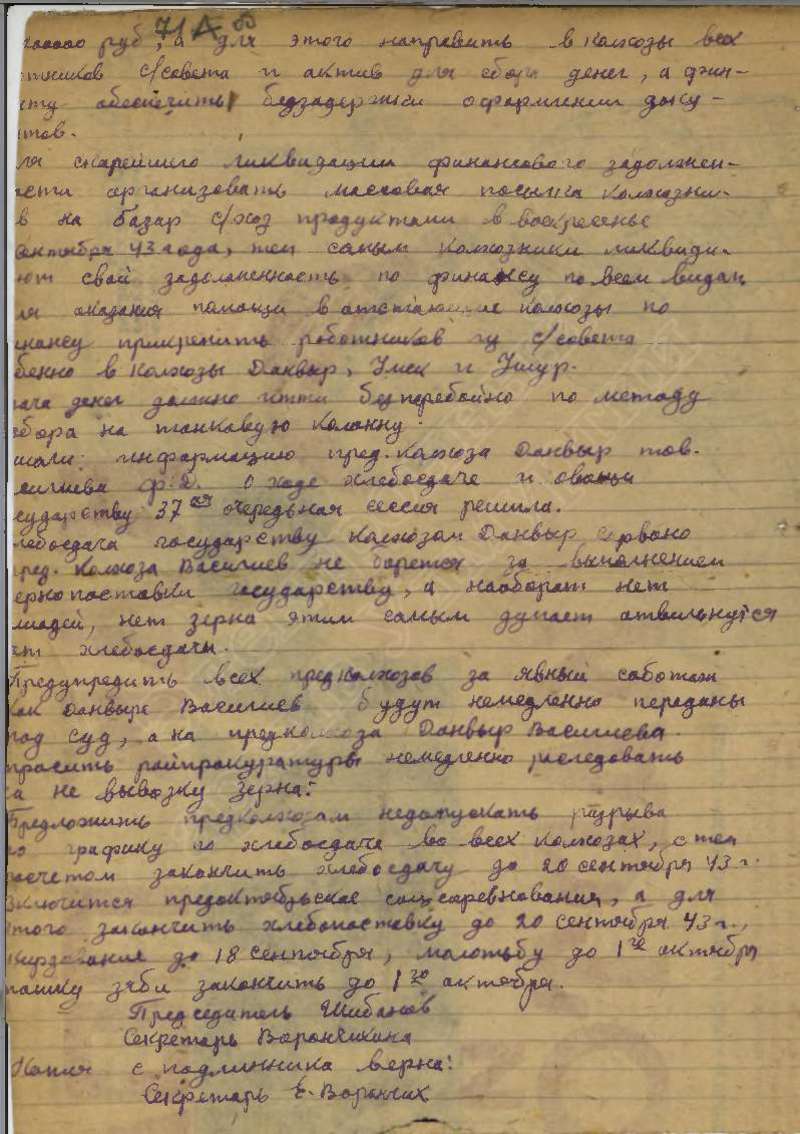 71 А 83
руб, а для этого направить в колхозы всех
тников с/совета и актив для сбора денег, а фин-
обеспечить бедзадержки оформлении доку-
тов.
ля скарейшего ликвидации финансового задолжен-
ости организовать массовая посылка колхозни-
в на базар с/хоз продуктами в воскресенье
сентября 43 года, тем самым колхозники ликвиди-
ют свой задолженность по финансу по всем видам
ля оказания помощи в отстающие колхозы по
инансу прикрепить роботников из с/совета
бенно в колхозы Данвыр, Умск и Ушур.
дача денег должно итти безперебойно по методу
сбора на танкавую колонну.
шали: информацию пред. колхоза Данвыр тов.
силиева Ф.Д. о ходе хлебосдаче и овощи
сударству 37ая очередьная сессия решила.
лебосдача государству колхозом Данвыр сорвано
пред. колхоза Василиев не борется за выполнением
зернопоставки государству, а наоборот нет
людей, нет зерна этим самым думает отвильнутся
от хлебосдачи.
Предупредить всех предколхозов за явный саботаж
как Данвыре Василиев будут немедленно переданы
под суд, а на предколхоза Данвыр Василиева
просить райпрокуратуры немедленно расследовать
за не вывозку зерна:
Предложить предколхозам недопускать разрыва
по графику по хлебосдаче во всех колхозах, с тем
расчетом закончить хлебосдачу до 20 сентября 43 г.
Включится предоктябрьское соцсоревнования, а для
этого закончить хлебопоставку до 20 сентября 43 г.,
скирдование до 18 сентября, молотьбу до 1го октября
пашку зяби закончить до 1го октября.
Председатель Шибанов
Секретарь Варанчихина
Копия с подлинника верна:
Секретарь Е. Варанчих